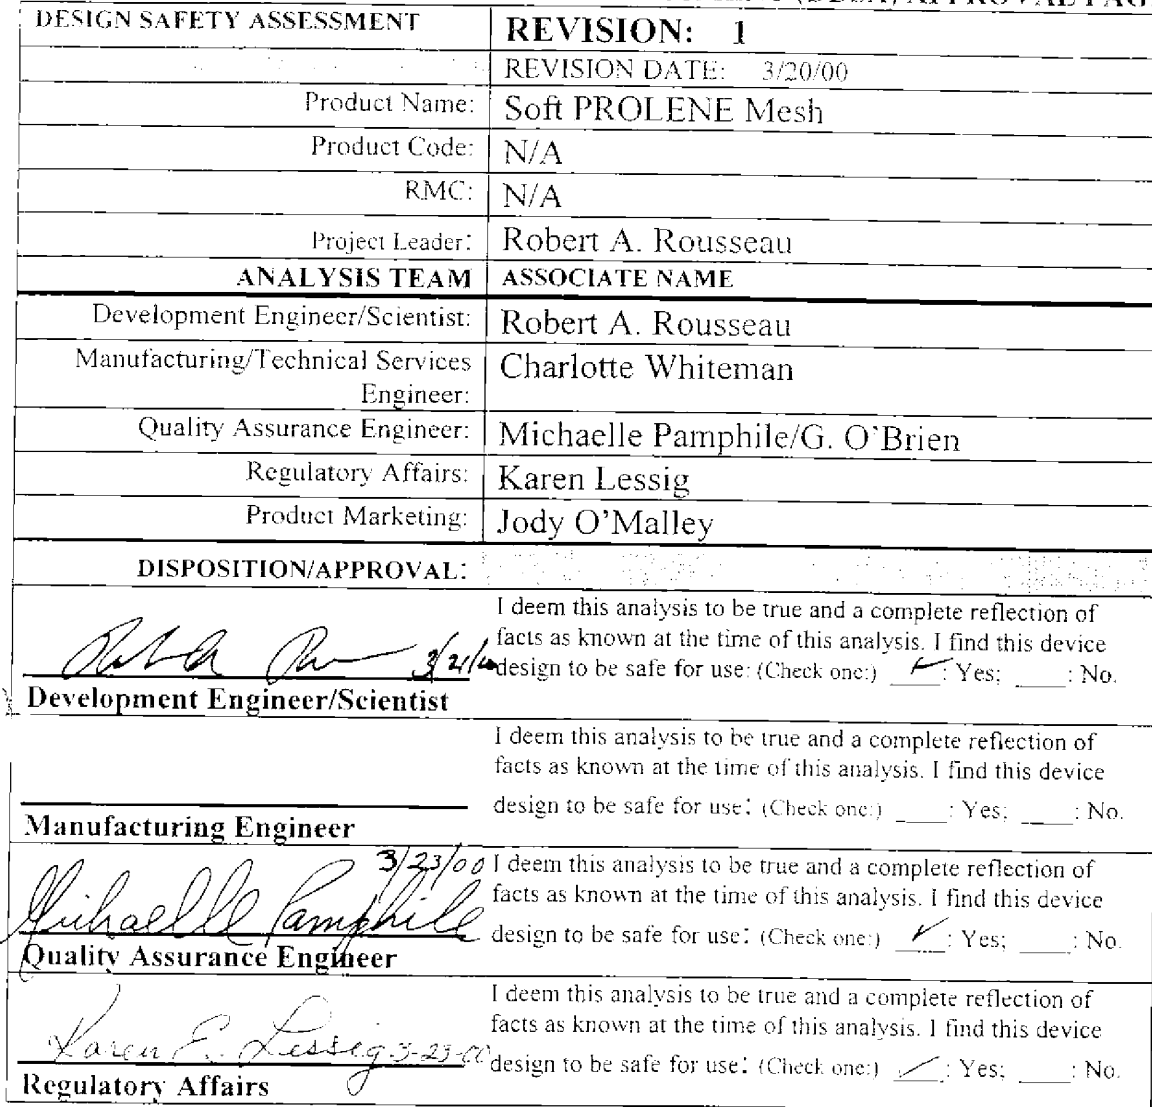 APPROVAL PAGE
DESIGN SAFETY ASSESSMENT
REVISION: 1
REVISION DATE: 3/20/00
Product Name: Soft PROLENE Mesh
Product Code: N/A
RMC: N/A
Project Leader: Robert A. Rousseau
ANALYSIS TEAM ASSOCIATE NAME
Development Engineer/Scientist: Robert A. Rousseau
Manufacturing/Technical Services Charlotte Whiteman
Engineer:
Quality Assurance Engineer: Michaelle Pamphile/G. O'Brien
Regulatory Affairs: Karen Lessig
Product Marketing: Jody O'Malley
DISPOSITION/APPROVAL:
I deem this analysis to be true and a complete reflection of
facts as known at the time of this analysis. I find this device
3/21/00 design to be safe for use: (Check one:) ✓: Yes; ____: No.
Development Engineer/Scientist
I deem this analysis to be true and a complete reflection of
facts as known at the time of this analysis. I find this device
design to be safe for use: (Check one:) ____: Yes; ____: No.
Manufacturing Engineer
3/23/00 I deem this analysis to be true and a complete reflection of
facts as known at the time of this analysis. I find this device
Michaelle Pamphile design to be safe for use: (Check one:) ✓: Yes; ____: No.
Quality Assurance Engineer
I deem this analysis to be true and a complete reflection of
facts as known at the time of this analysis. I find this device
Karen E. Lessig 3-23-00 design to be safe for use: (Check one:) ✓: Yes; ____: No.
Regulatory Affairs